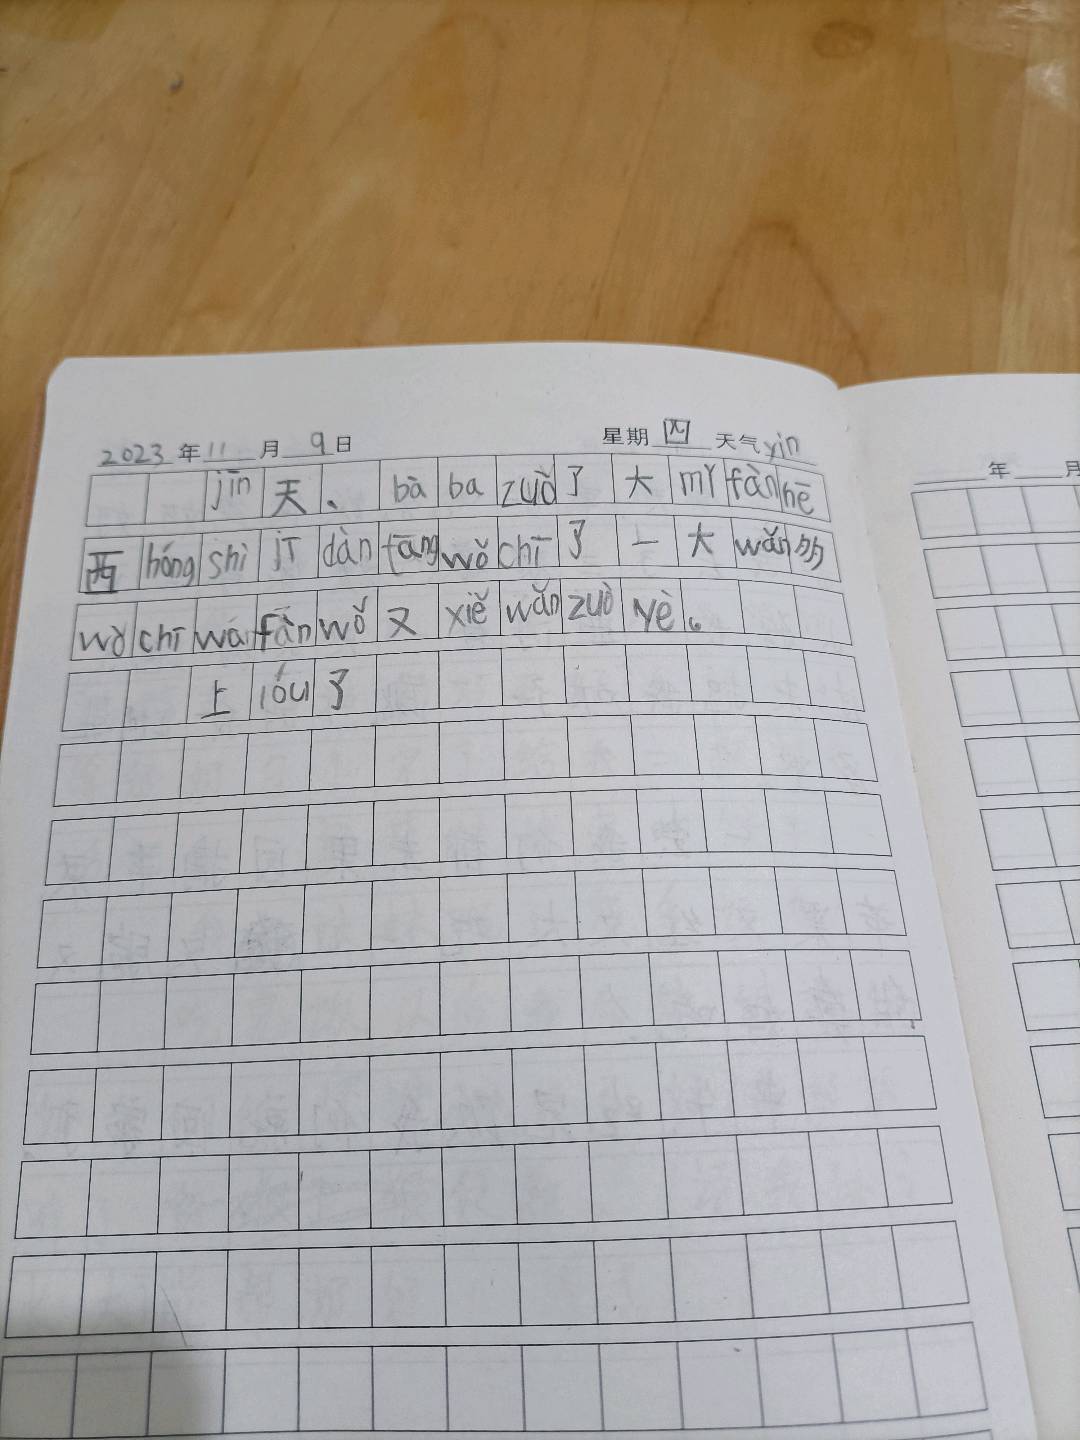 2023年11月9日 星期四 天气yin
jīn天、bà ba zuǒ了大mǐ fàn hē
西hóng shì jī dàn tāng wǒ chī了一大wǎn
wǒ chī wán fàn wǒ又xiě wǎn zuò yè。
上lóu了
年 月